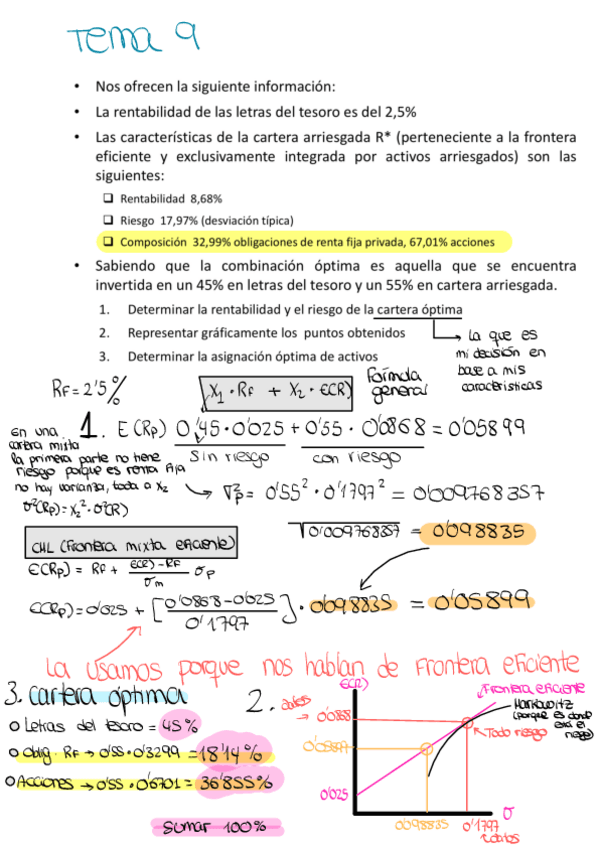 Tema 9
• Nos ofrecen la siguiente información:
• La rentabilidad de las letras del tesoro es del 2,5%
• Las características de la cartera arriesgada R* (perteneciente a la frontera
eficiente y exclusivamente integrada por activos arriesgados) son las
siguientes:
❑ Rentabilidad 8,68%
❑ Riesgo 17,97% (desviación típica)
❑ Composición 32,99% obligaciones de renta fija privada, 67,01% acciones
• Sabiendo que la combinación óptima es aquella que se encuentra
invertida en un 45% en letras del tesoro y un 55% en cartera arriesgada.
1. Determinar la rentabilidad y el riesgo de la cartera óptima
2. Representar gráficamente los puntos obtenidos
3. Determinar la asignación óptima de activos
→ La que es
mi decisión en
base a mis
características
RF = 2'5%
X1 · RF + X2 · E(R)
Fórmula
general
1. E(Rp) 0'45·0'025 + 0'55 · 0'0868 = 0'05899
Sin riesgo
con riesgo
en una
cartera mixta
la primera parte no tiene
riesgo porque es renta fija
no hay varianza, toda a X2
σ²(Rp) = X2² · σ²(R)
→ σ²p = 0'55² · 0'1797² = 0'009768357
√0'009768357 = 0'098835
CML (Frontera mixta eficiente)
E(Rp) = RF + E(R) - RF / σm σp
E(Rp) = 0'025 + [0'0868 - 0'025 / 0'1797] · 0'098835 = 0'05899
La usamos porque nos hablan de Frontera eficiente
3. cartera óptima
o Letras del tesoro = 45%
o Oblig. RF → 0'55 · 0'3299 = 18'14%
o Acciones → 0'55 · 0'6701 = 36'855%
Sumar 100%
2.
E(R)
Frontera eficiente
Markowitz
(porque es donde
está el
riesgo)
datos
→ 0'0868
Todo riesgo
0'05899
0'025
σ
0'098835
0'1797
datos